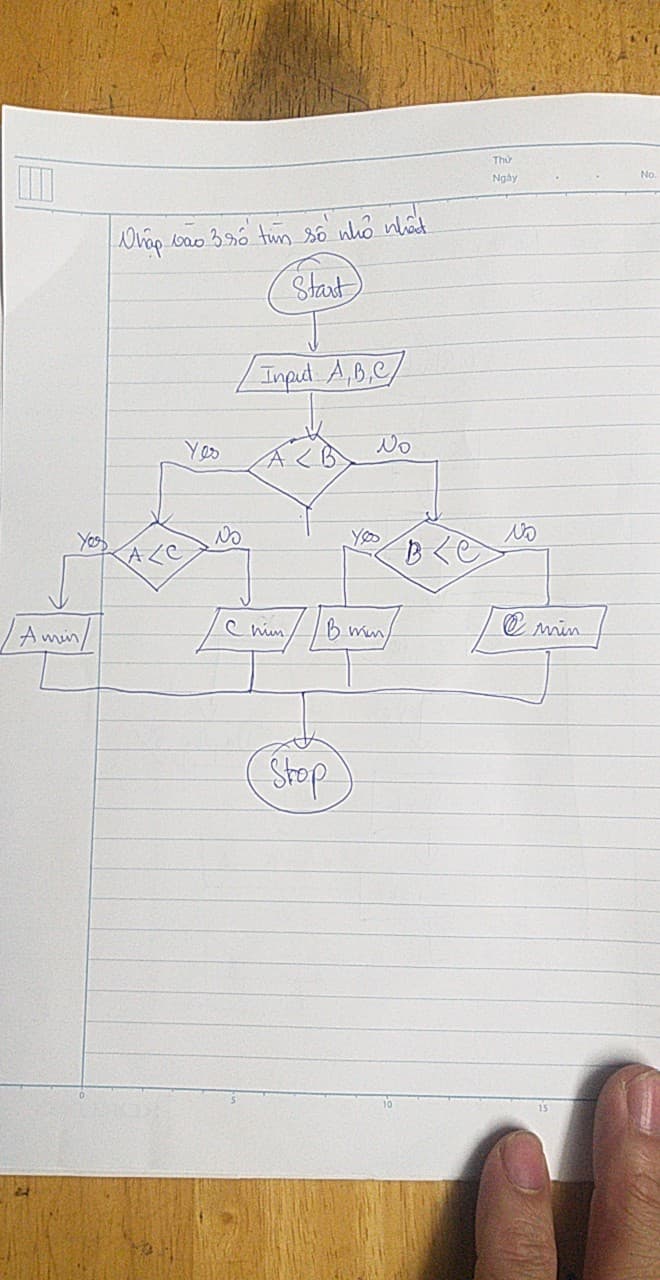 Thứ
Ngày . . No.
Nhập vào 3 số tìm số nhỏ nhất
Start
Input A, B, C
Yes A < B No
Yes A < C No Yes B < C No
A min C min B min C min
Stop
0 5 10 15